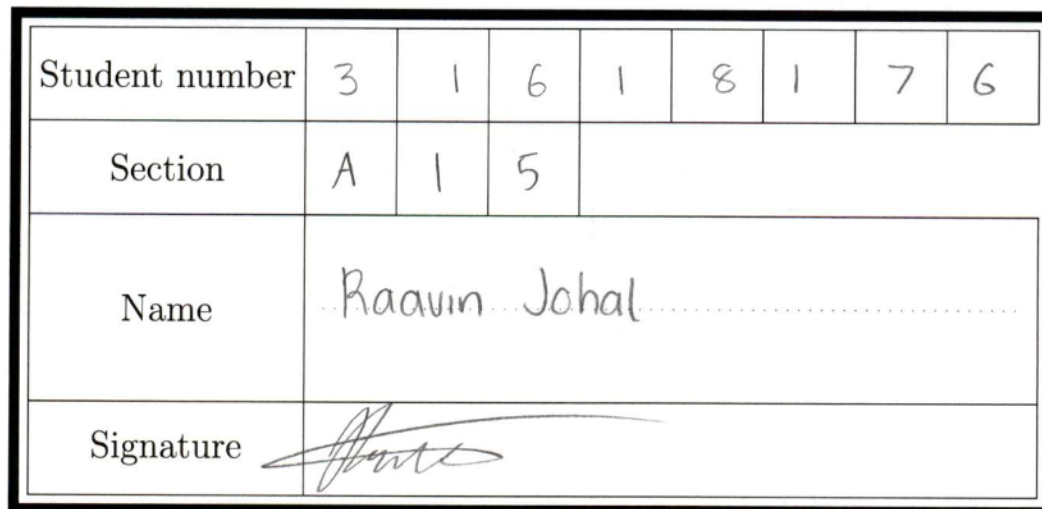 Student number 3 1 6 1 8 1 7 6
Section A 1 5
Name Raavin Johal
Signature